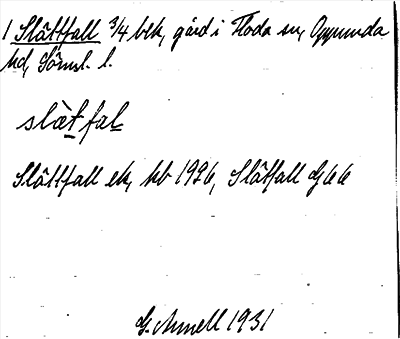 1 Slättfall 3/4 blk, gård i Floda sn, Oppunda
hd, Sörml. l.
slätfal
Slättfall ek, kb 1926, Slätfall G 66
G. Annell 1931